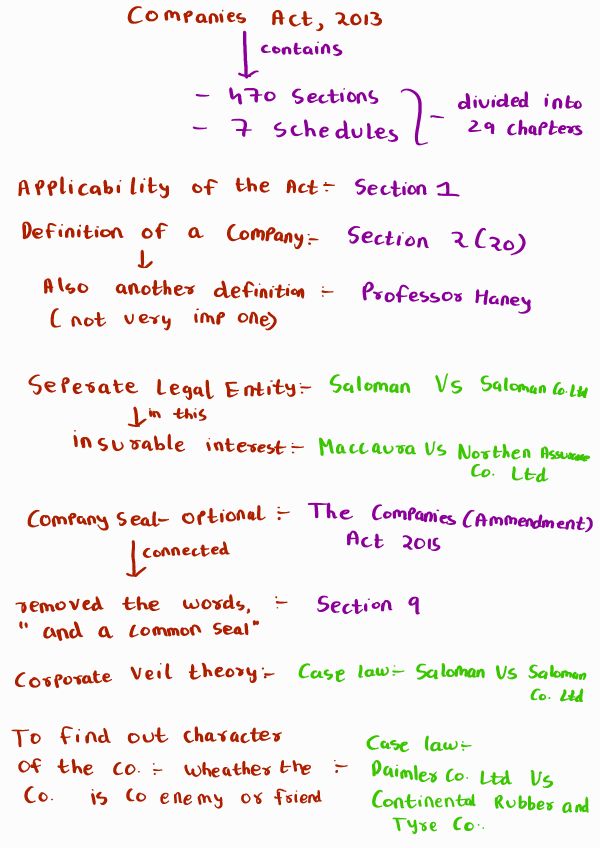 Companies Act, 2013
contains
- 470 Sections
- 7 Schedules
- divided into
29 chapters
Applicability of the Act:- Section 1
Definition of a Company:- Section 2(20)
Also another definition :- Professor Haney
(not very imp one)
Seperate Legal Entity:- Saloman Vs Saloman Co. Ltd
in this
insurable interest:- Maccaura Vs Northen Assurance
Co. Ltd
Company seal- optional :- The Companies (Ammendment)
Act 2015
connected
removed the words, :- Section 9
"and a common seal"
Corporate Veil theory:- Case law:- Saloman Vs Saloman
Co. Ltd
To find out character
of the co. :- wheather the :-
Co. is Co enemy or friend
Case law:-
Daimler Co. Ltd Vs
Continental Rubber and
Tyre Co..